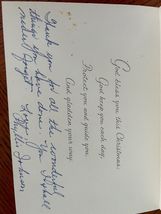 God bless you this Christmas,
God keep you each day,
Protect you and guide you,
And gladden your way.
Thank you for all the wonderful
things you have done. You
Love
Johnson